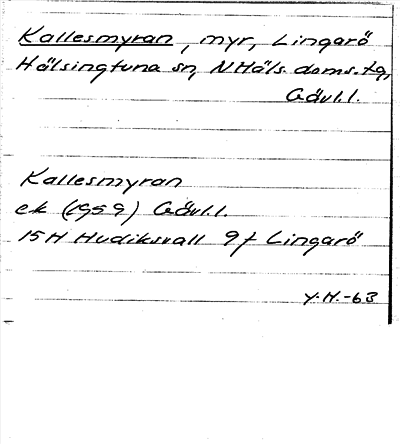 Kallesmyran, myr, Lingarö
Hälsingtuna sn, N Häls. doms. tg,
Gävl.l.
Kallesmyran
ek (1959) Gävl.l.
15H Hudiksvall 9f Lingarö
Y.H.-63